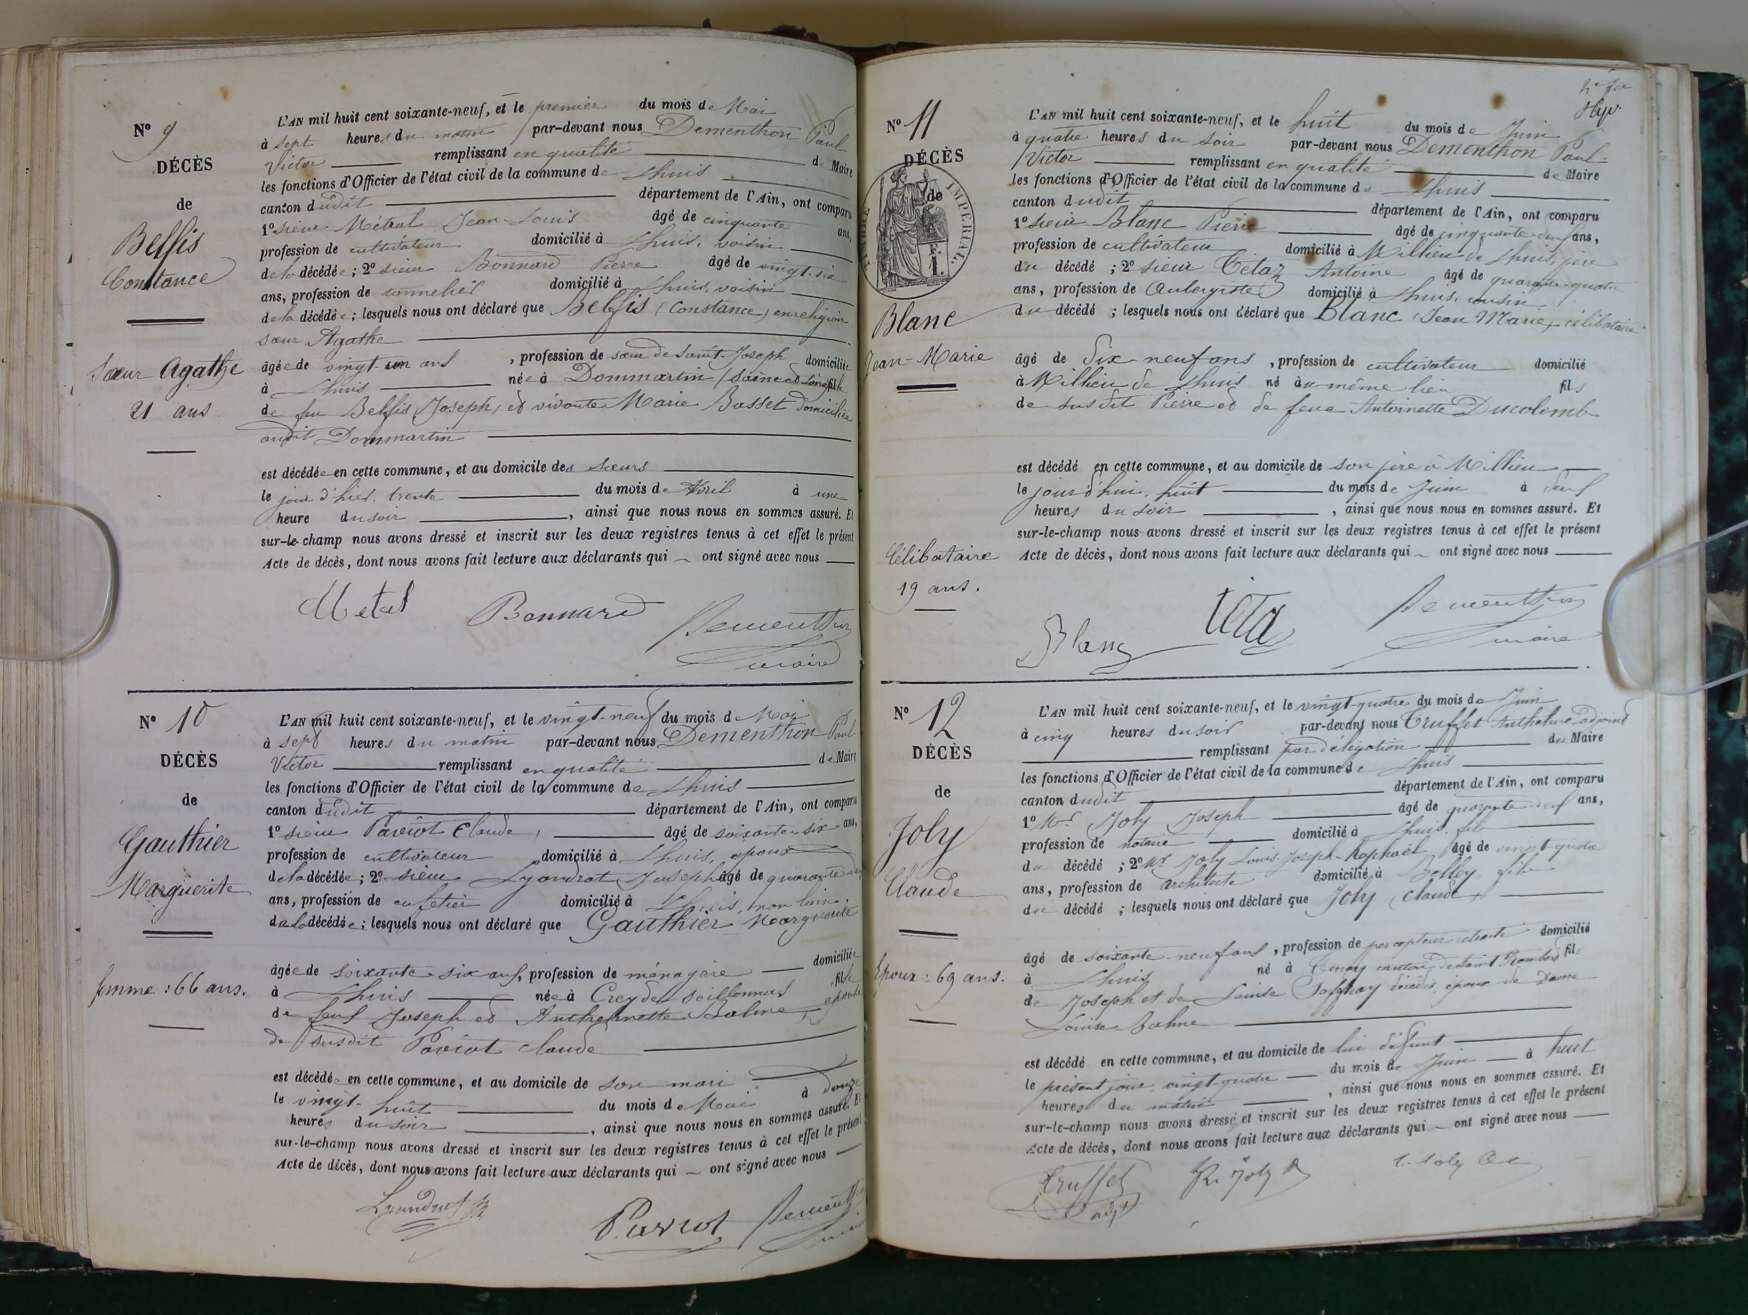 N° 9
DÉCÈS
de
Belfis
Constance
Sœur Agathe
21 ans
L'AN mil huit cent soixante-neuf, et le premier du mois de Mai
à sept heures du matin par-devant nous Dementhon Paul
Victor remplissant en qualité de Maire
les fonctions d'Officier de l'état civil de la commune de Lhuis
canton dudit département de l'Ain, ont comparu
1° sieur Métral Jean-Louis âgé de cinquante ans,
profession de cultivateur domicilié à Lhuis, voisin
de la décédée ; 2° sieur Bonnard Pierre âgé de vingt-six
ans, profession de tonnelier domicilié à Lhuis, voisin
de la décédée ; lesquels nous ont déclaré que Belfis (Constance) en religion
sœur Agathe
âgée de vingt un ans , profession de sœur de Saint-Joseph domiciliée
à Lhuis née à Dommartin (Saône et Loire) fille
de feu Belfis Joseph, et vivante Marie Basset domiciliée
audit Dommartin
est décédée en cette commune, et au domicile des sœurs
le jour d'hier, trente du mois de Avril à une
heure du soir , ainsi que nous nous en sommes assuré. Et
sur-le-champ nous avons dressé et inscrit sur les deux registres tenus à cet effet le présent
Acte de décès, dont nous avons fait lecture aux déclarants qui ont signé avec nous
Métral Bonnard Dementhon
maire
N° 10
DÉCÈS
de
Gauthier
Marguerite
femme : 66 ans.
L'AN mil huit cent soixante-neuf, et le vingt-neuf du mois de Mai
à sept heures du matin par-devant nous Dementhon Paul
Victor remplissant en qualité de Maire
les fonctions d'Officier de l'état civil de la commune de Lhuis
canton dudit département de l'Ain, ont comparu
1° sieur Paviot Claude, âgé de soixante-six ans,
profession de cultivateur domicilié à Lhuis, époux
de la décédée ; 2° sieur Lyandrat Joseph âgé de quarante
ans, profession de cafetier domicilié à Lhuis, non
de la décédée ; lesquels nous ont déclaré que Gauthier Marguerite
âgée de soixante six ans, profession de ménagère domiciliée
à Lhuis née à Creyde seillonnas fille
de feus Joseph et Anthelmette épouse
de susdit Paviot Claude
est décédée en cette commune, et au domicile de son mari
le vingt-huit du mois de Mai à douze
heures du soir , ainsi que nous nous en sommes assuré. Et
sur-le-champ nous avons dressé et inscrit sur les deux registres tenus à cet effet le présent
Acte de décès, dont nous avons fait lecture aux déclarants qui ont signé avec nous
Lyandrat Paviot Dementhon
N° 11
DÉCÈS
de
IMPERIAL.
Blanc
Jean-Marie
Célibataire
19 ans.
L'AN mil huit cent soixante-neuf, et le huit du mois de Juin
à quatre heures du soir par-devant nous Dementhon Paul
Victor remplissant en qualité de Maire
les fonctions d'Officier de l'état civil de la commune de Lhuis
canton dudit département de l'Ain, ont comparu
1° sieur Blanc Pierre âgé de cinquante-neuf ans,
profession de cultivateur domicilié à Millieu de Lhuis, père
du décédé ; 2° sieur Tétaz Antoine âgé de quarante-quatre
ans, profession de Aubergiste domicilié à Lhuis, voisin
du décédé ; lesquels nous ont déclaré que Blanc (Jean Marie) célibataire
âgé de Dix-neuf ans , profession de cultivateur domicilié
à Millieu de Lhuis né au même lieu fils
de susdit Pierre et de feue Antoinette Ducolomb
est décédé en cette commune, et au domicile de son père à Millieu
le jourd'hui, huit du mois de Juin à
heures du soir , ainsi que nous nous en sommes assuré. Et
sur-le-champ nous avons dressé et inscrit sur les deux registres tenus à cet effet le présent
Acte de décès, dont nous avons fait lecture aux déclarants qui ont signé avec nous
Blanc Téta Dementhon
maire
N° 12
DÉCÈS
de
Joly
Claude
Epoux : 69 ans.
L'AN mil huit cent soixante-neuf, et le vingt-quatre du mois de Juin
à cinq heures du soir par-devant nous Truffet Anthelme, adjoint
remplissant par délégation du Maire
les fonctions d'Officier de l'état civil de la commune de Lhuis
canton dudit département de l'Ain, ont comparu
1° Mr Joly Joseph âgé de quarante-neuf ans,
profession de notaire domicilié à Lhuis, fils
du décédé ; 2° Mr Joly Louis-Joseph-Raphaël âgé de vingt-quatre
ans, profession de architecte domicilié à Belley, fils
du décédé ; lesquels nous ont déclaré que Joly (Claude)
âgé de soixante-neuf ans , profession de percepteur retraité domicilié
à Lhuis né à canton de Saint Rambert fils
de Joseph et de Louise décédés, époux de Dame
Louise
est décédé en cette commune, et au domicile de lui défunt
le présent jour, vingt-quatre du mois de Juin à huit
heures du matin , ainsi que nous nous en sommes assuré. Et
sur-le-champ nous avons dressé et inscrit sur les deux registres tenus à cet effet le présent
Acte de décès, dont nous avons fait lecture aux déclarants qui ont signé avec nous
Truffet R. Joly Joly
adjt